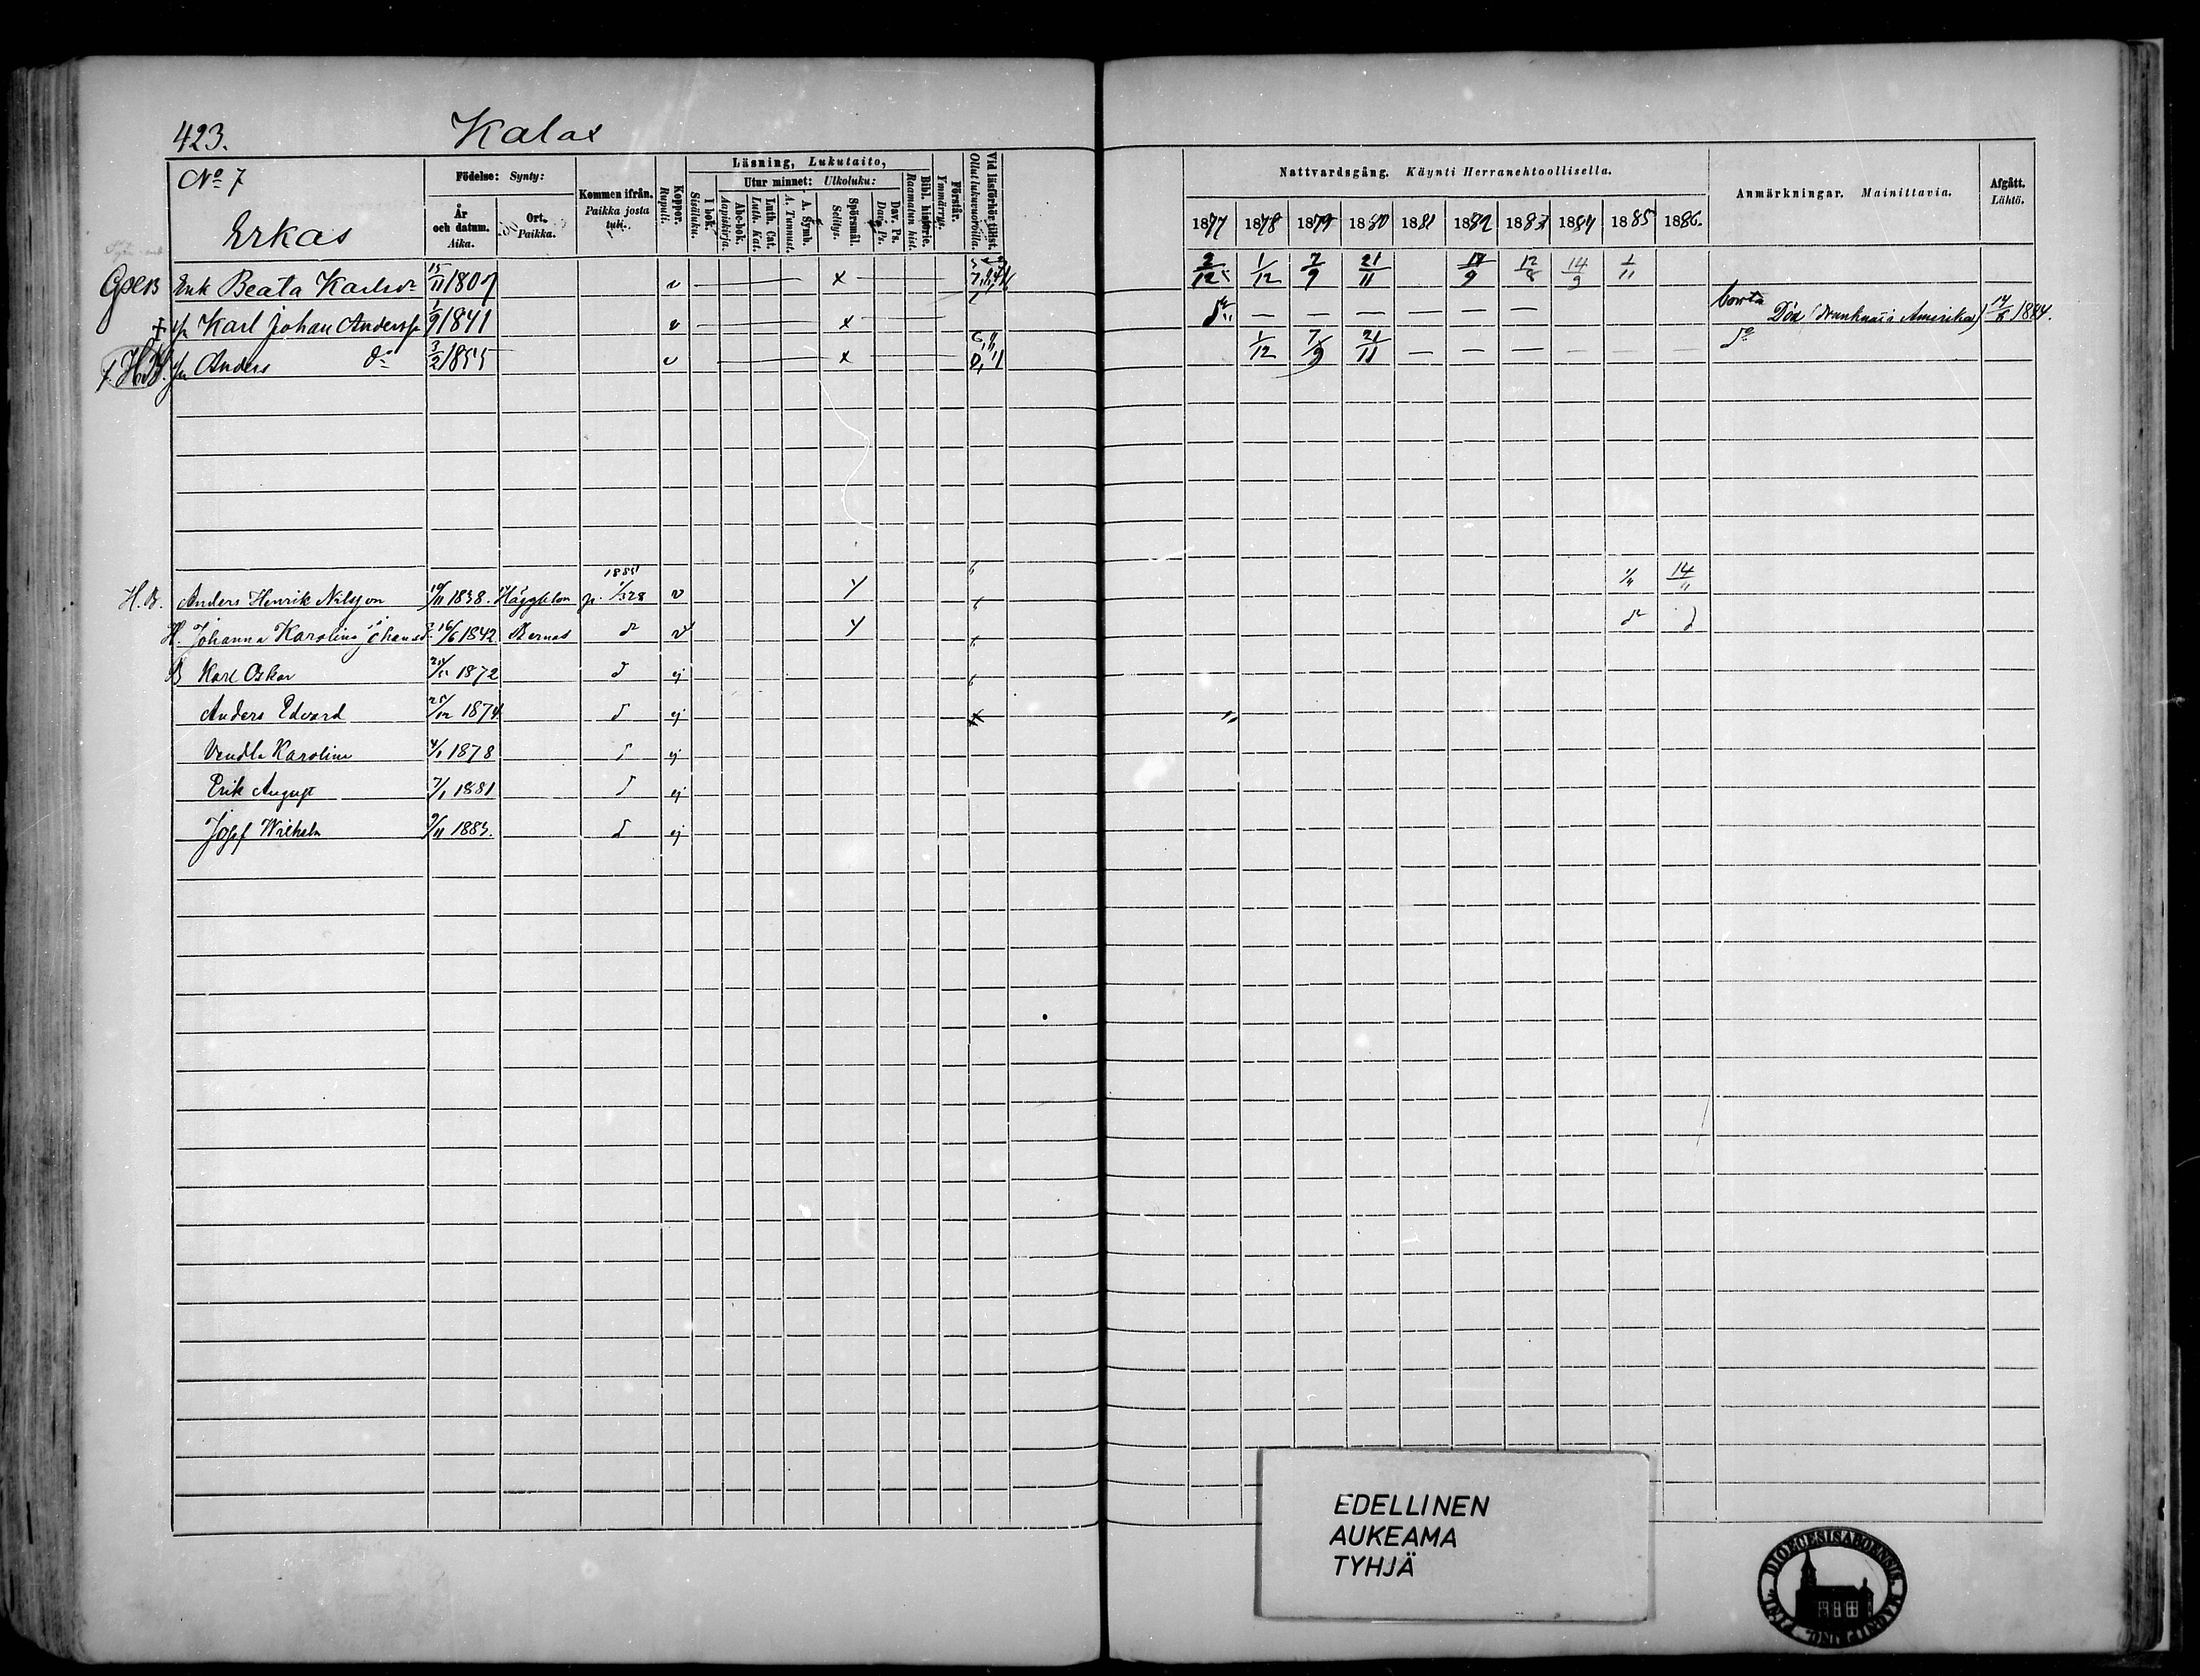 423. Kalax
No 7
Erkas
Födelse: Synty:
År och datum. Aika.
Ort. Paikka.
Kommen ifrån. Paikka josta tuli.
Koppor. Rupuli.
Läsning, Lukutaito,
I bok. Sisäluku.
Utur minnet: Ulkoluku:
Abc-bok. Aapiskirja.
Luth. Cat. Luth. Kat.
A. Symb. A. Tunnust.
Spörsmål. Selitys.
Dav. Ps. Dav. Ps.
Bibl. historie. Raamatun hist.
Förstår. Ymmärrys.
Vid läsförhör tillst. Ollut lukuvuoroilla.
Nattvardsgång. Käynti Herranehtoollisella.
1877 1878 1879 1880 1881 1882 1883 1884 1885 1886.
Anmärkningar. Mainittavia.
Afgått. Lähtö.
Enk Beata Karlsdr 15/11 1807 v x 2/12 1/12 7/9 21/11 17/9 12/8 14/9 1/11
Karl Johan Anderss 1/9 1841 v x — — — — — — borta Död (drunknat i Amerika) 14/6 1884.
Anders do 3/2 1855 v x 1/12 7/9 21/11 — — — — — do
H.B. Anders Henrik Nilsson 19/11 1838. Häggblom 1885 p. 1/328 v y 1/11 14/11
H. Johanna Karolina Johansd. 16/6 1842 Bernas d v y d d
B Karl Oskar 1872 d ej
Anders Edvard 25/12 1874 d ej
Vendla Karolina 4/1 1878 d ej
Erik August 7/1 1881 d ej
Josef Wilhelm 9/11 1883. d ej
EDELLINEN
AUKEAMA
TYHJÄ